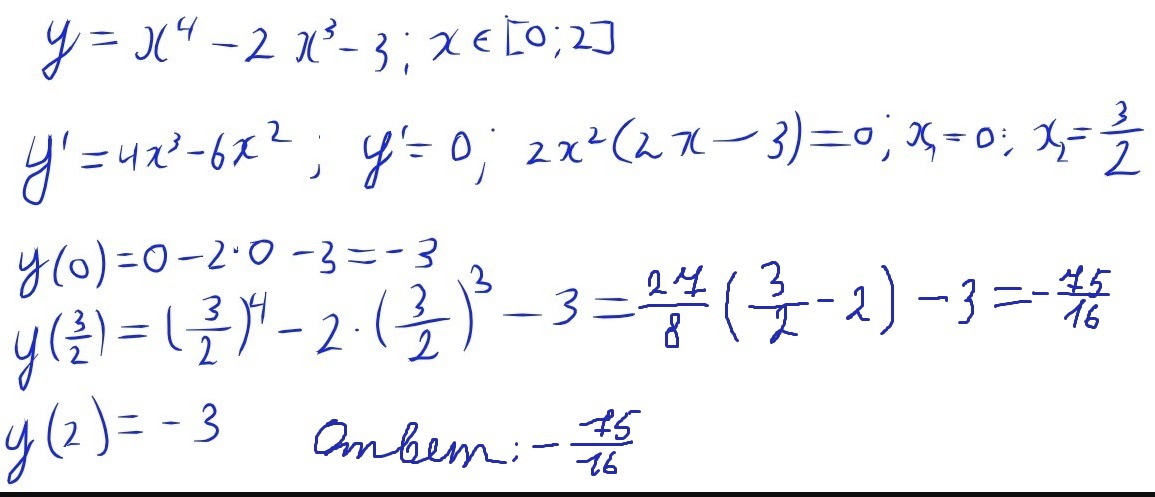 y = x⁴ − 2x³ − 3; x ∈ [0; 2]
y' = 4x³ − 6x²; y' = 0; 2x²(2x − 3) = 0; x₁ = 0; x₂ = 3/2
y(0) = 0 − 2·0 − 3 = −3
y(3/2) = (3/2)⁴ − 2·(3/2)³ − 3 = 27/8 (3/2 − 2) − 3 = −75/16
y(2) = −3 Ответ: −75/16